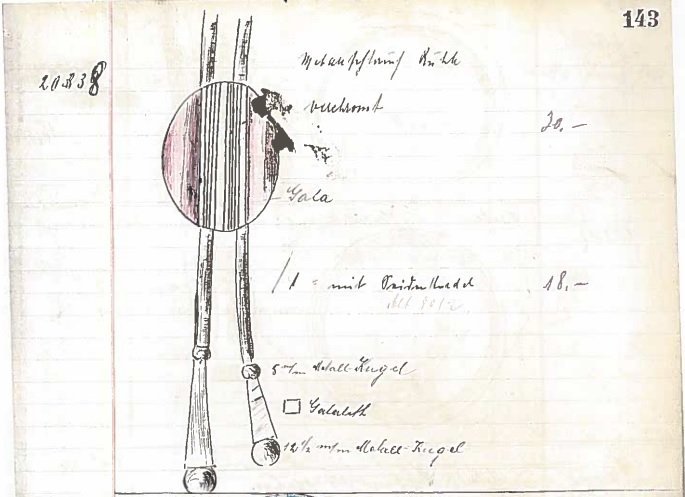 143
20838
Metallschlauch
verchromt
20.-
Gala
/1 = mit Seidenkordel
18.-
5 m/m Metall-Kugel
Galalith
12½ m/m Metall-Kugel